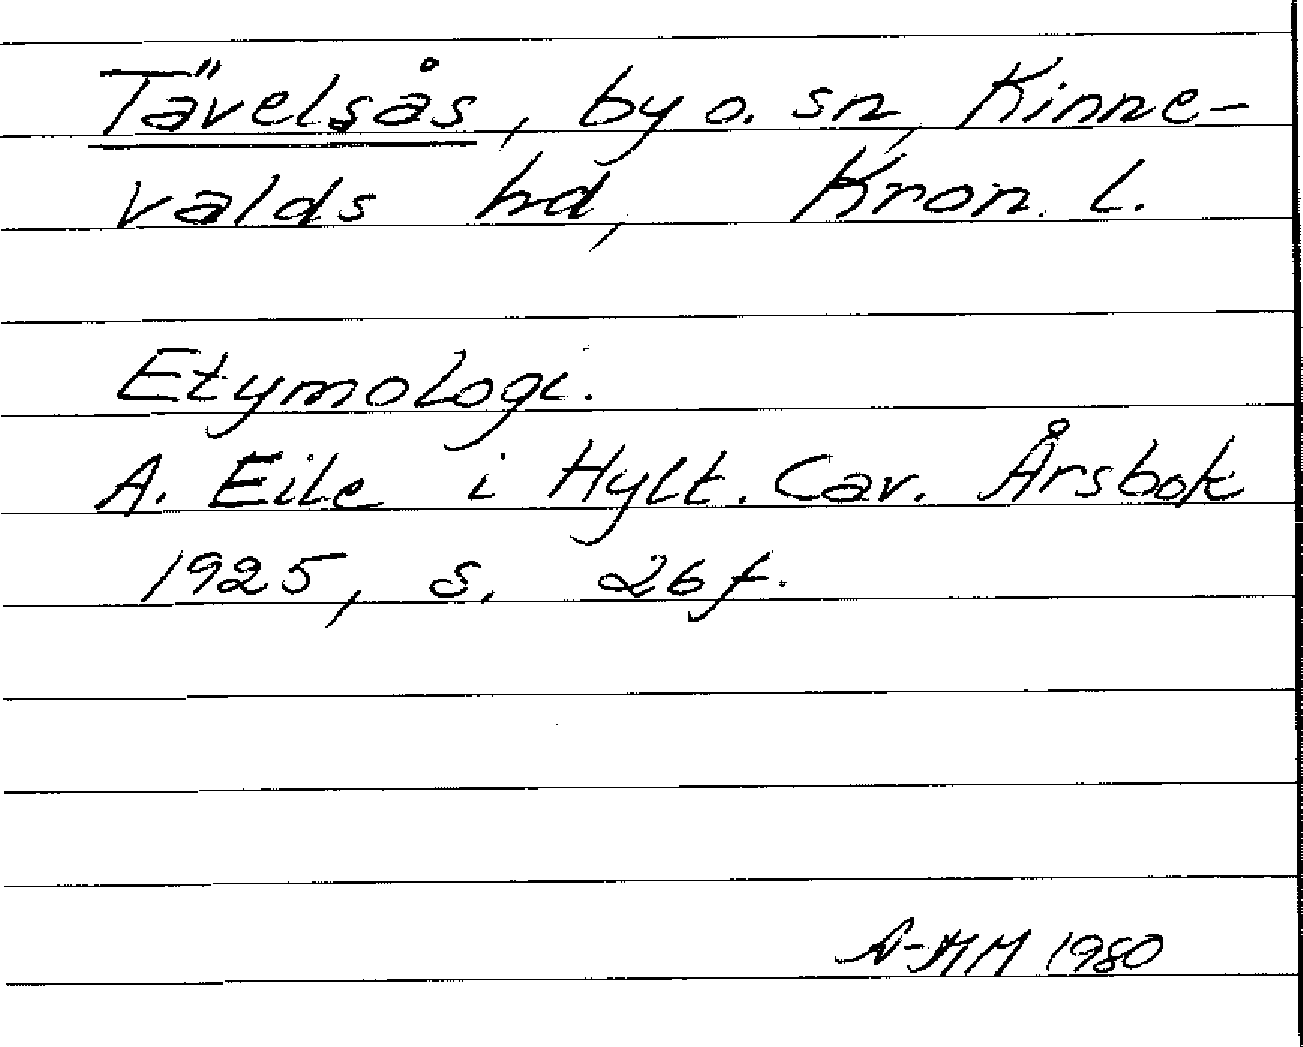 Tävelsås, by o. sn, Kinne-
valds hd, Kron. l.
Etymologi.
A. Eile i Hylt. Cav. Årsbok
1925, s. 26 f.
A-KM 1980